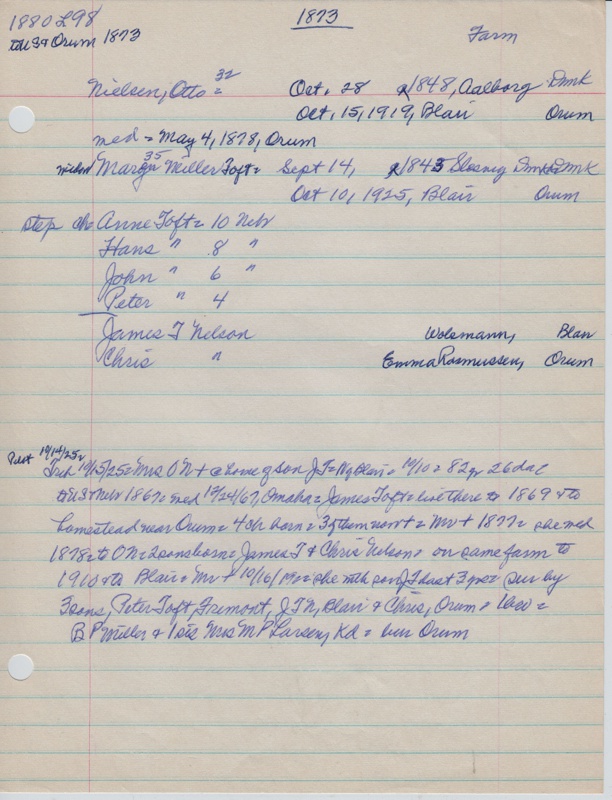 1880 L98 1873
to US & Orum 1873 Farm
Nielsen, Otto = 32 Oct. 28 1848, Aalborg Dmk
Oct. 15, 1919, Blair Orum
med = May 4, 1878, Orum
35 Miller Toft = Sept 14, 1843 Dmk
Oct 10, 1925, Blair Orum
step ch = Anne Toft = 10 Nebr
Hans " 8 "
John " 6 "
Peter " 4
James T Nelson Wolsmann, Blair
Chris " Emma Rasmussen, Orum
Pilot 10/14/25
10/15/25 = Mrs O N + @ home of son J T = Blair = 10/10 = 82 yr 26 da =
to US & Nebr 1867 = med 12/24/67, Omaha = James Toft = live there to 1869 & to
homestead near Orum = 4 ch born = 3 of them now + = Mr + 1877 = she med
1878 = to O N = 2 sons born = James T & Chris Nelson = on same farm to
1910 & to Blair = Mr + 10/16/19 = she with son J T last 3 yrs = sur by
3 sons, Peter Toft, Fremont, J T N, Blair & Chris, Orum = 1 bro =
B P Miller & 1 sis Mrs M P Larsen, Kd = bur Orum